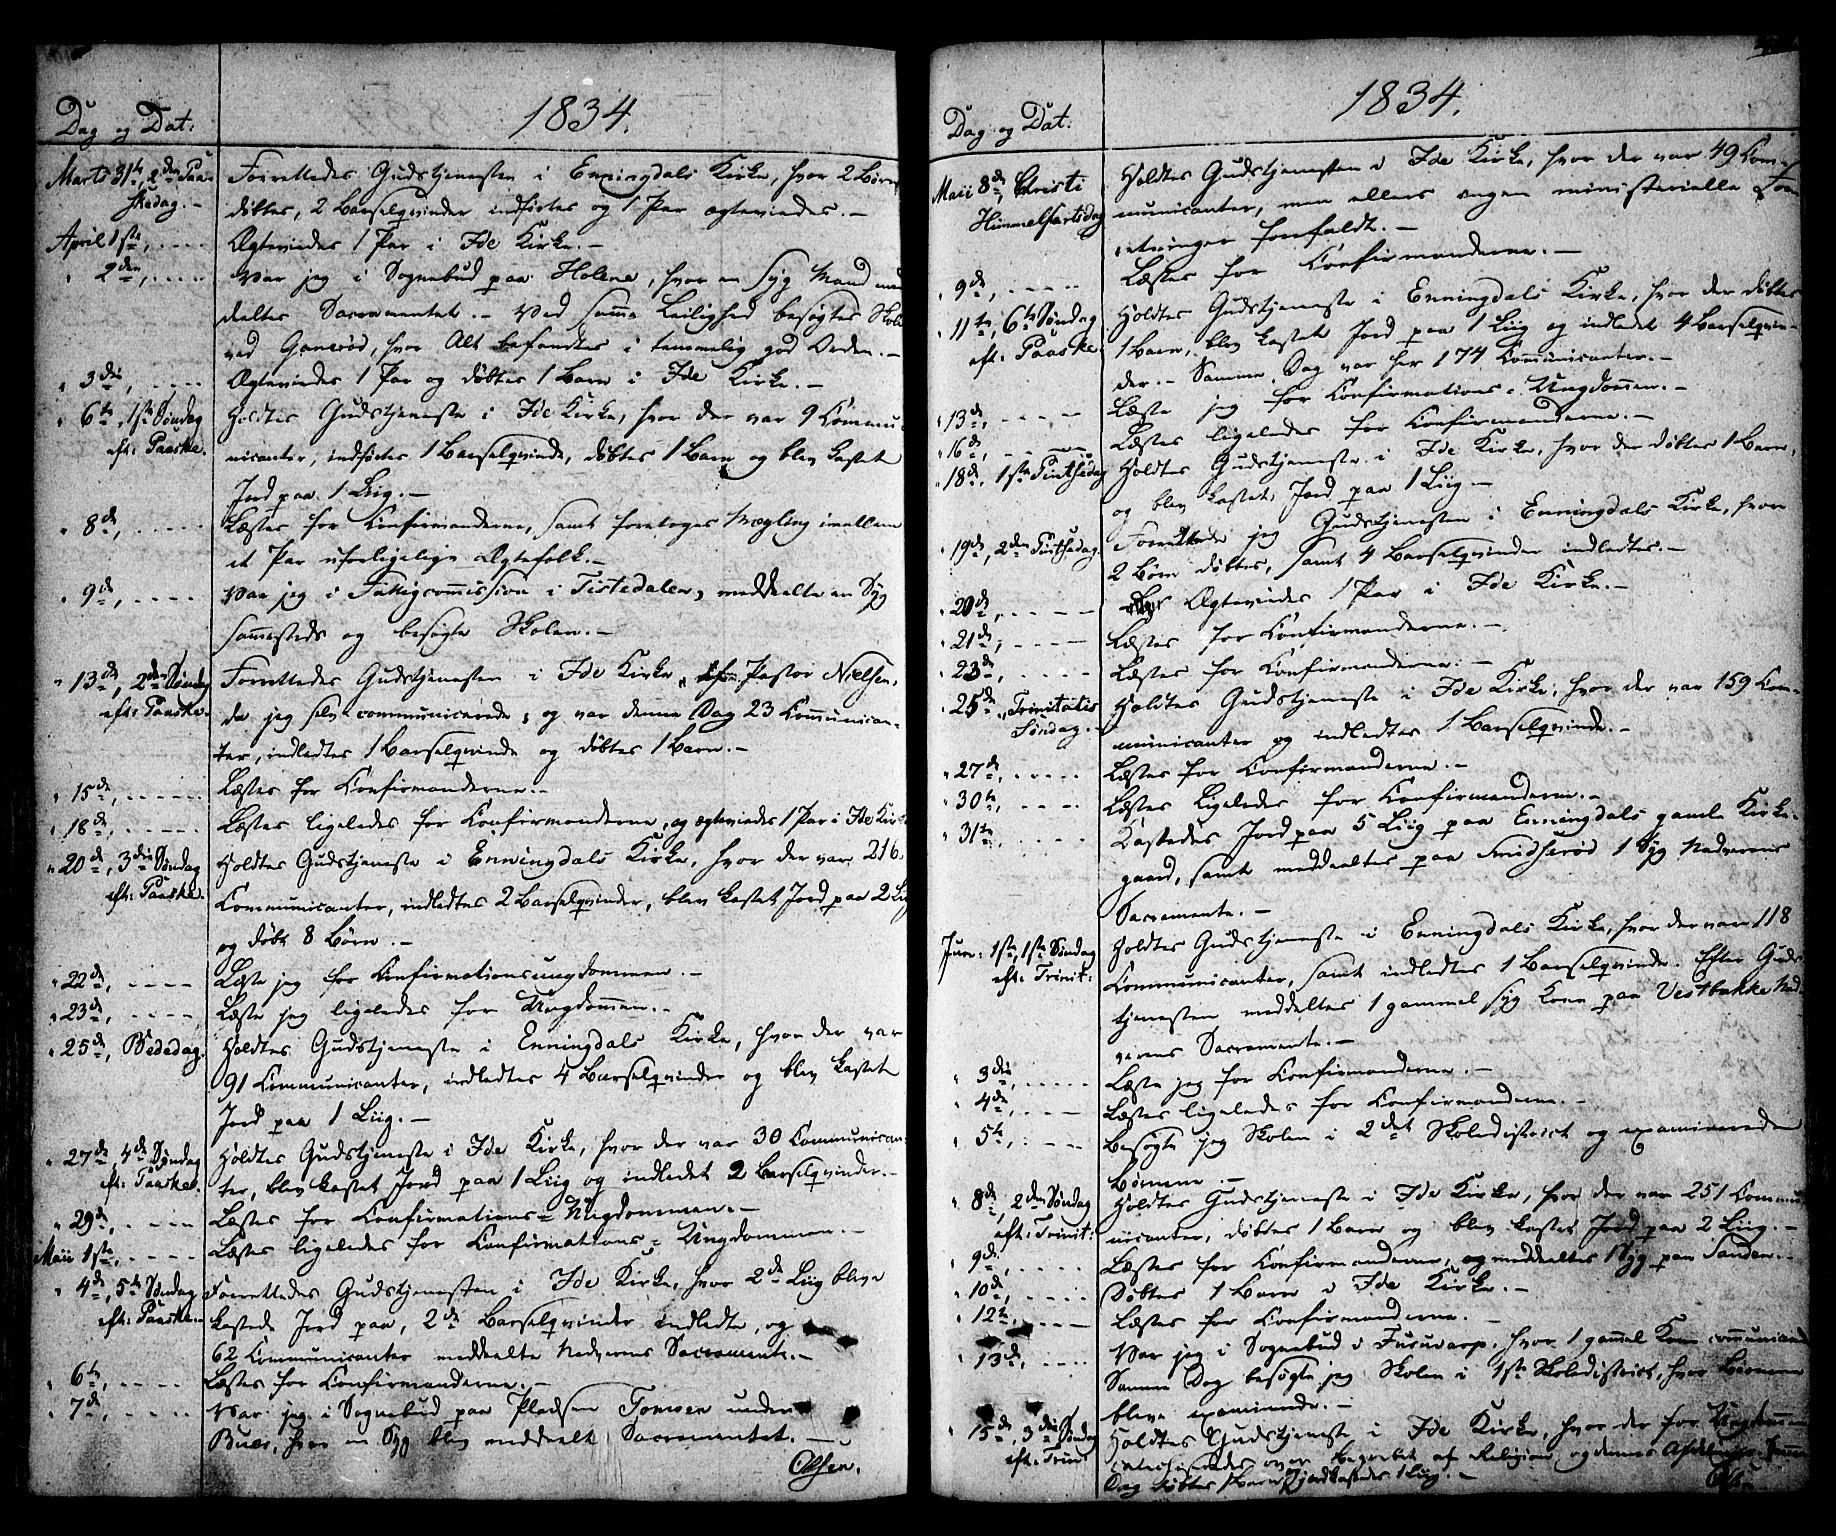 1834.
Dag og Dat:
Marts 31te, 2den Paa- Forrettedes Gudstjenesten i Enningdals Kirke, hvor 2 Børn
skedag. – døbtes, 2 Barselqvinder indførtes og 1 Par ægteviedes. –
April 1ste, .... Ægteviedes 1 Par i Ide Kirke. –
" 2den, .... Var jeg i Sognebud paa Holene, hvor en syg Mand med
deeltes Sacramentet. – Ved samme Leilighed besøgtes Skolen
ved Ganerød, hvor Alt befandtes i temmelig god Orden. –
" 3die, .... Ægteviedes 1 Par og døbtes 1 Barn i Ide Kirke. –
" 6te, 1ste Søndag Holdtes Gudstjeneste i Ide Kirke, hvor der var 9 Commu-
eft: Paaske. nicanter, indførtes 1 Barselqvinde, døbtes 1 Barn og blev kastet
Jord paa 1 Liig. –
" 8de, .... Læstes for Confirmanderne, samt foretoges Mægling imellem
et Par uforligelige Ægtefolk. –
" 9de, .... Var jeg i Fattigcommission i Tistedalen, meddeelte en Syg
sammesteds og besøgte Skolen. –
" 13de, 2den Søndag Forrettedes Gudstjenesten i Ide Kirke, af Pastor Nielsen,
eft: Paaske. da jeg selv communicerede, og var denne Dag 23 Communican-
ter, indledtes 1 Barselqvinde og døbtes 1 Barn. –
" 15de, .... Læstes for Confirmanderne. –
" 18de, .... Læstes ligeledes for Confirmanderne, og ægteviedes 1 Par i Ide Kirke
" 20de, 3die Søndag Holdtes Gudstjeneste i Enningdals Kirke, hvor der var 216
eft: Paaske. Communicanter, indledtes 2 Barselqvinder, blev kastet Jord paa 2 Liig
og døbt 8 Børn. –
" 22de, .... Læste jeg for Confirmationsungdommen. –
" 23de, .... Læste jeg ligeledes for Ungdommen. –
" 25de, Bededag. Holdtes Gudstjeneste i Enningdals Kirke, hvor der var
91 Communicanter, indledtes 4 Barselqvinder og blev kastet
Jord paa 1 Liig. –
" 27de, 4de Søndag Holdtes Gudstjeneste i Ide Kirke, hvor der var 30 Communican-
eft: Paaske. ter, blev kastet Jord paa 1 Liig og indledet 2 Barselqvinder. –
" 29de, .... Læstes for Confirmations-Ungdommen. –
Maii 1ste, .... Læstes ligeledes for Confirmations-Ungdommen. –
" 4de, 5te Søndag Forrettedes Gudstjenesten i Ide Kirke, hvor 2de Liig bleve
eft: Paaske. – kastede Jord paa, 2de Barselqvinder indledte, og
62 Communicanter meddeelte Nadverens Sacramente. –
" 6te, .... Læstes for Confirmanderne. –
" 7de, .... Var jeg i Sognebud paa Pladsen Tomven under
Buer, hvor en Syg blev meddeelt Sacramentet. –
Olsen.
1834.
Dag og Dat:
Maii 8de, Christi Holdtes Gudstjenesten i Ide Kirke, hvor der var 49 Com-
Himmelfartsdag municanter, men ellers ingen ministerielle Forr
etninger forefaldt. –
" 9de, .... Læstes for Confirmanderne. –
" 11te, 6te Søndag Holdtes Gudstjeneste i Enningdals Kirke, hvor der døbtes
eft: Paaske. 1 Barn, blev kastet Jord paa 1 Liig og indledet 4 Barselqvin-
der. – Samme Dag var her 174 Communicanter. –
" 13de, .... Læste jeg for Confirmations-Ungdommen. –
" 16de, .... Læstes ligeledes for Confirmanderne. –
" 18de, 1ste Pintsedag Holdtes Gudstjeneste i Ide Kirke, hvor der døbtes 1 Barn,
og blev kastet Jord paa 1 Liig. –
" 19de, 2den Pintsedag. Forrettede jeg Gudstjenesten i Enningdals Kirke, hvor
2 Børn døbtes, samt 4 Barselqvinder indledtes. –
" 20de, .... Ægteviedes 1 Par i Ide Kirke. –
" 21de, .... Læstes for Confirmanderne. –
" 23de, .... Læstes for Confirmanderne. –
" 25de, Trinitatis Holdtes Gudstjeneste i Ide Kirke, hvor der var 159 Com-
Søndag. – municanter og indledtes 1 Barselqvinde. –
" 27de, .... Læstes for Confirmanderne. –
" 30te, .... Læstes ligeledes for Confirmanderne. –
" 31te, .... Kastedes Jord paa 5 Liig paa Enningdals gamle Kirke-
gaard, samt meddeeltes paa Smidserød 1 Syg Nadverens
Sacramente. –
Juni 1ste, 1ste Søndag Holdtes Gudstjeneste i Enningdals Kirke, hvor der var 118
eft: Trinit: Communicanter, samt indledtes 1 Barselqvinde. Efter Guds-
tjenesten meddeltes 1 gammel syg Kone paa Vestbakke Nad-
verens Sacramente. –
" 3die, .... Læste jeg for Confirmanderne. –
" 4de, .... Læstes ligeledes for Confirmanderne. –
" 5te, .... Besøgte jeg Skolen i 2det Skoledistrict og examinerede
Børnene. –
" 8de, 2den Søndag Holdtes Gudstjeneste i Ide Kirke, hvor der var 251 Commu-
eft: Trinit: nicanter, døbtes 1 Barn og blev kastet Jord paa 2 Liig. –
" 9de, .... Læstes for Confirmanderne, og meddeeltes 1 Syg paa Sanden. –
" 10de, .... Døbtes 1 Barn i Ide Kirke. –
" 12te, .... Læstes for Confirmanderne. –
" 13de, .... Var jeg i Sognebud i Furuvarp, hvor 1 gammel Kone
Samme Dag besøgte jeg Skolen i 1ste Skoledistrict, hvor Børnene
bleve examinerede. –
" 15de, 3die Søndag Holdtes Gudstjeneste i Ide Kirke, hvor der for Ungdommen
eft: Trinit: catechiseredes over Begrebet af Religion og dennes
Dag døbtes 1 Barn, jordkastedes 1 Liig. –
Olsen